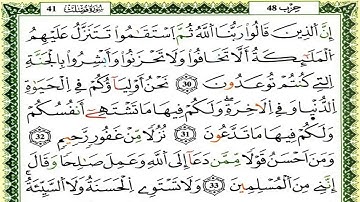 حزب 48 سورة فصلت 41
إِنَّ الَّذِينَ قَالُوا رَبُّنَا اللَّهُ ثُمَّ اسْتَقَامُوا تَتَنَزَّلُ عَلَيْهِمُ
الْمَلَائِكَةُ أَلَّا تَخَافُوا وَلَا تَحْزَنُوا وَأَبْشِرُوا بِالْجَنَّةِ
الَّتِي كُنتُمْ تُوعَدُونَ 30 نَحْنُ أَوْلِيَاؤُكُمْ فِي الْحَيَوٰةِ
الدُّنْيَا وَفِي الْآخِرَةِ وَلَكُمْ فِيهَا مَا تَشْتَهِي أَنفُسُكُمْ
وَلَكُمْ فِيهَا مَا تَدَّعُونَ 31 نُزُلًا مِّنْ غَفُورٍ رَّحِيمٍ 32
وَمَنْ أَحْسَنُ قَوْلًا مِّمَّن دَعَا إِلَى اللَّهِ وَعَمِلَ صَالِحًا وَقَالَ
إِنَّنِي مِنَ الْمُسْلِمِينَ 33 وَلَا تَسْتَوِي الْحَسَنَةُ وَلَا السَّيِّئَةُ